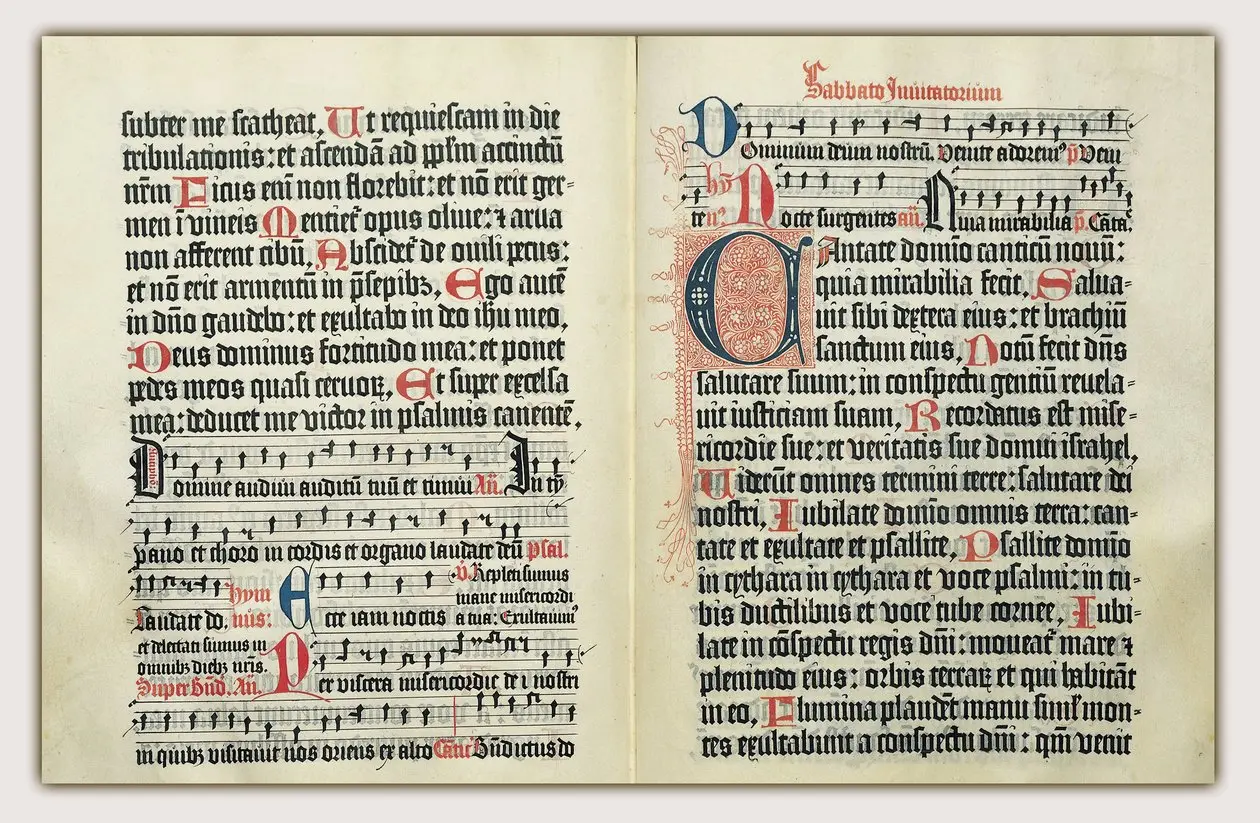 subter me scatheat, Ut requiescam in die
tribulationis: et ascendā ad pplm accinctū
nrm Ficus eni non florebit: et nō erit ger=
men ī vineis Mentiet opus olive: ⁊ arua
non afferent cibū, Abscidet de ouili pecus:
et nō erit armentū in psepibꝫ, Ego autē
in dno gaudebo: et exultabo in deo ihu meo,
Deus dominus fortitudo mea: et ponet
pedes meos quasi ceruoꝝ, Et super excelsa
mea: deducet me victor in psalmis canentē,
Domine audiui auditū tuū et timui Añ. In ty
pano et choro in cordis et organo laudate deū psal.
Laudate do, hym
nus: Ecce iam noctis
v̄. Repleti sumus
mane misericordi
a tua: Exultauimꝰ
et delectati sumus in
omnibꝫ diebꝫ nris.
Super Bñd. Añ. Per viscera misericordie dei nostri
in quibꝫ visitauit nos oriens ex alto Bñdictus do
Sabbato Inuitatorium
Dominum deum nostrū. Venite adoremꝰ p̄ Veni
te hy
nꝰ. Nocte surgentes añ. Quia mirabilia p̄. Cāta.
Cantate domino canticū nouū:
quia mirabilia fecit, Salua=
uit sibi dextera eius: et brachiū
sanctum eius, Notū fecit dns
salutare suum: in conspectu gentiū reuela=
uit iusticiam suam, Recordatus est mise=
ricordie sue: et veritatis sue domui israhel,
Uiderūt omnes termini terre: salutare dei
nostri, Iubilate domino omnis terra: can=
tate et exultate et psallite, Psallite domino
in cythara in cythara et voce psalmi: in tu=
bis ductilibus et voce tube cornee, Iubi=
late in cōspectu regis dni: moueat mare ⁊
plenitudo eius: orbis terraꝝ et qui habitāt
in eo, Flumina plaudēt manu simul mon=
tes exultabunt a conspectu dni: qm venit